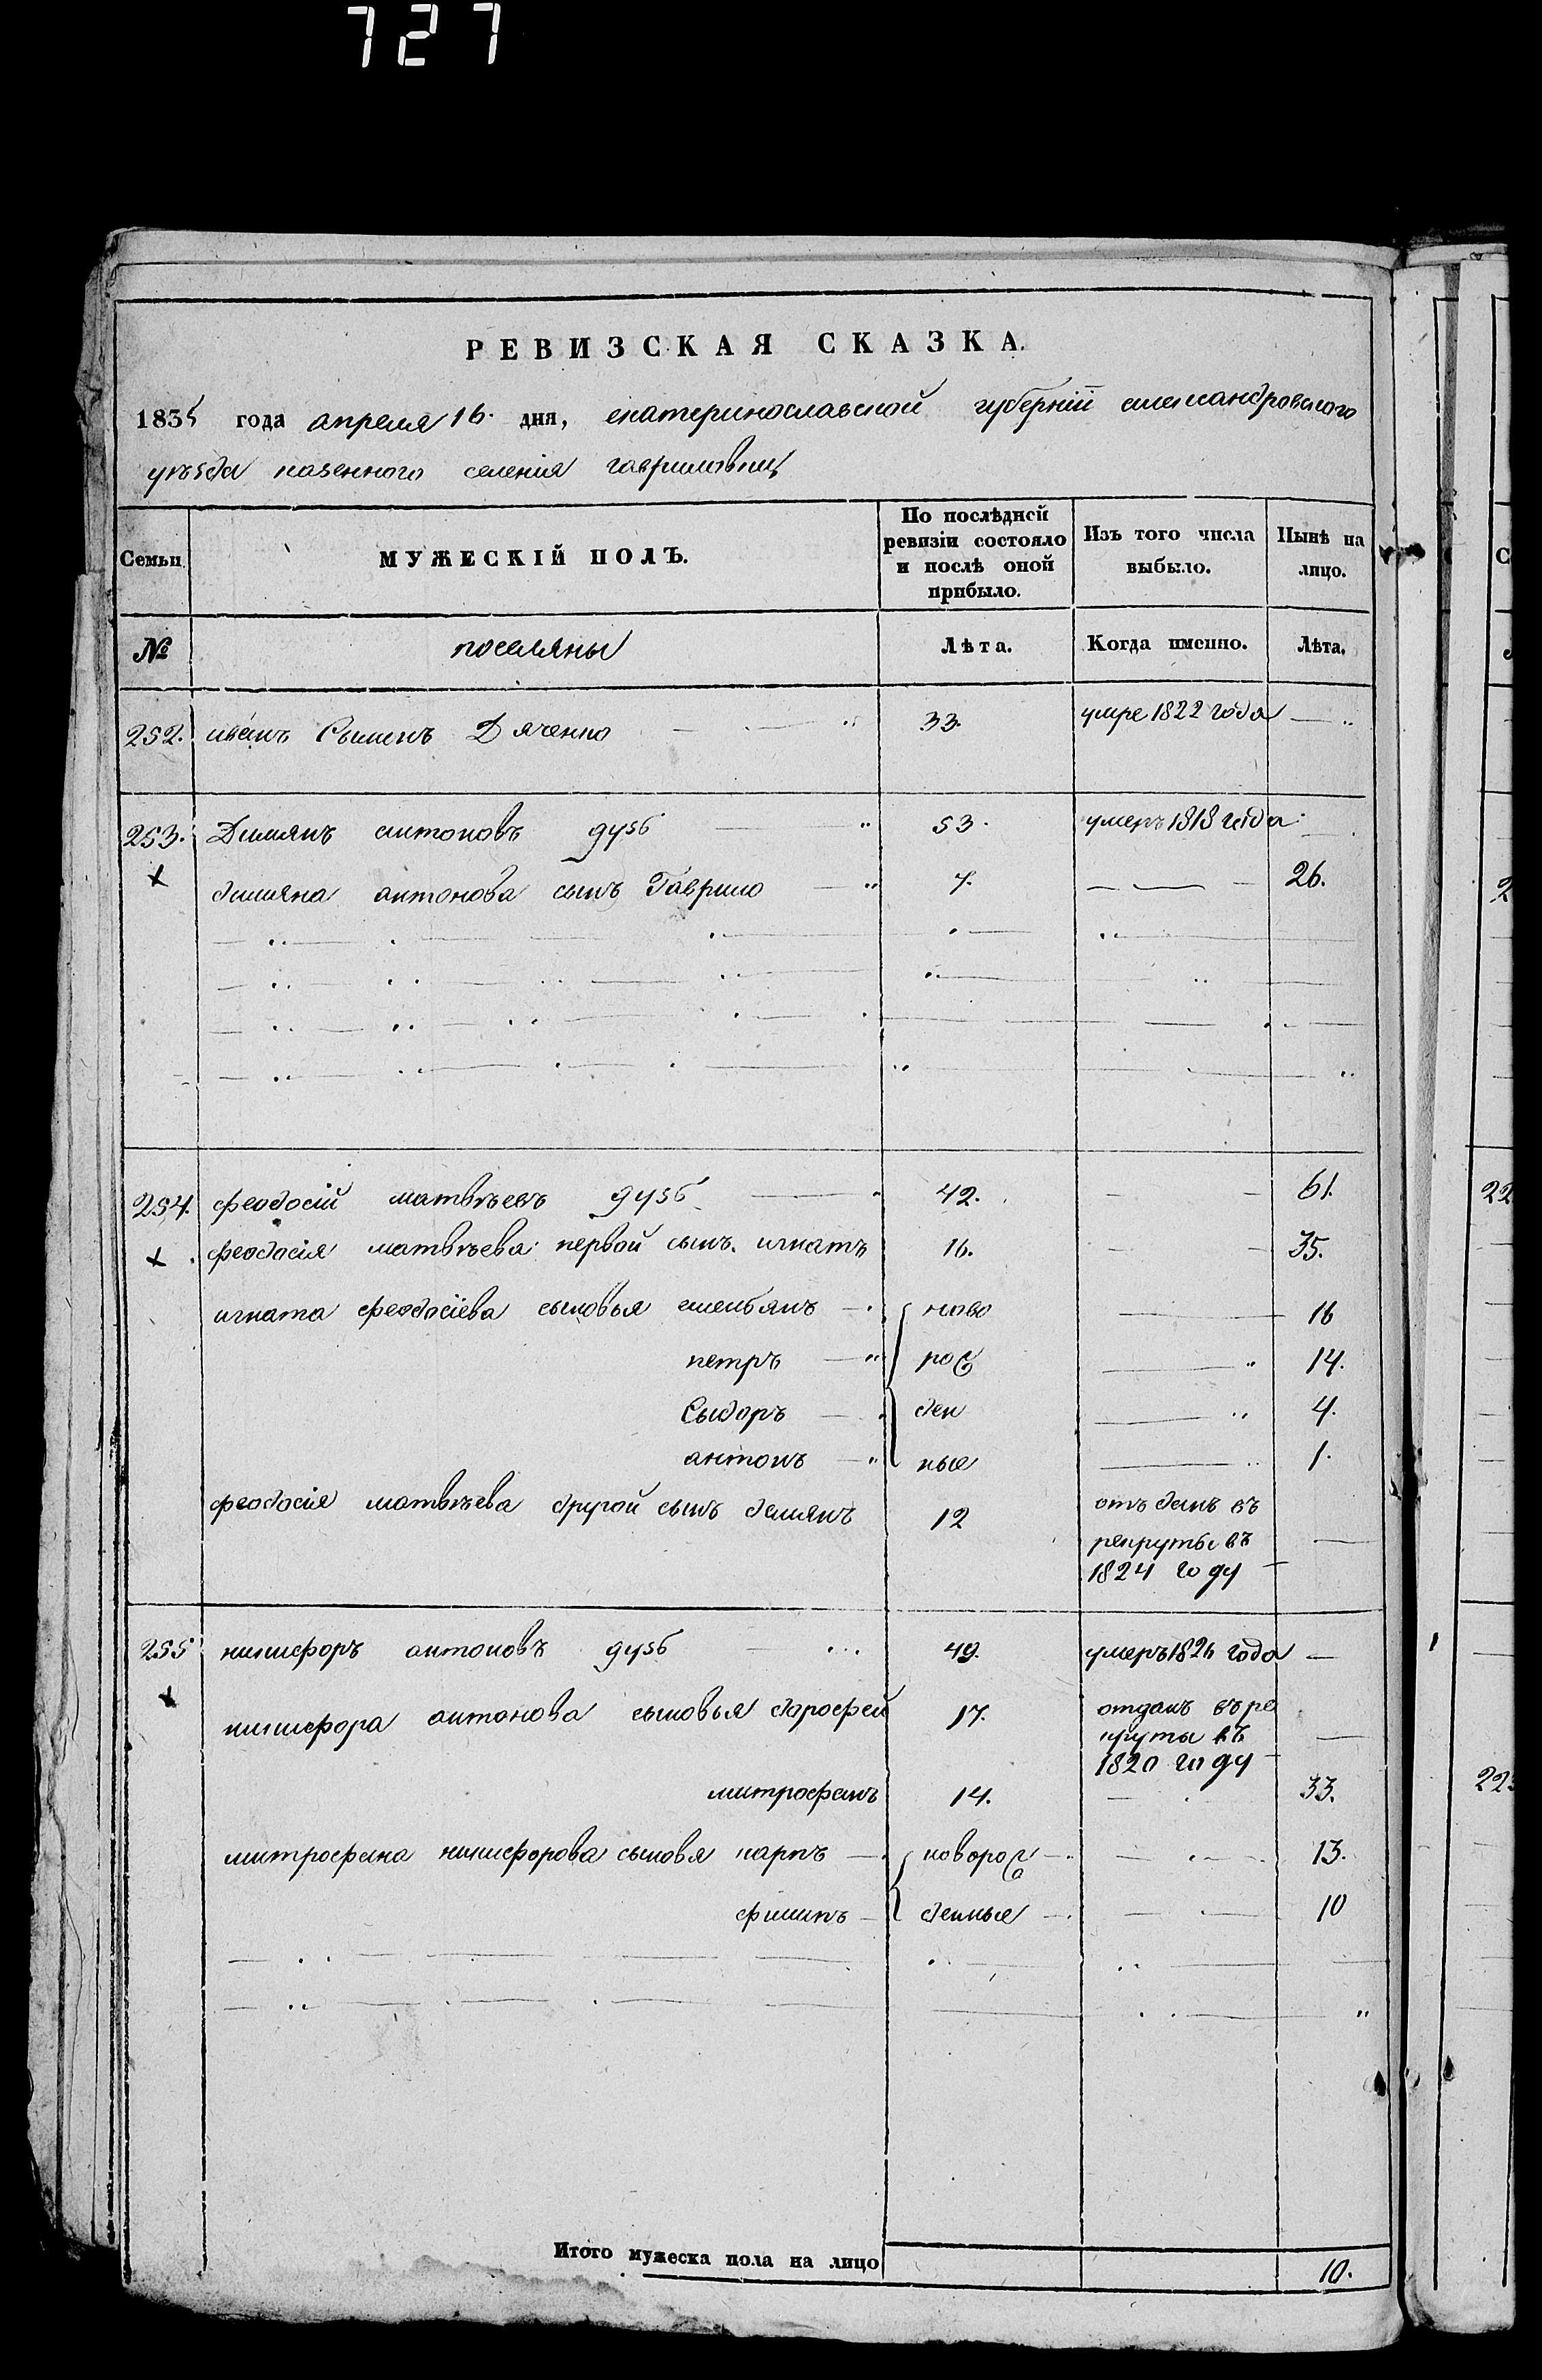 727
РЕВИЗСКАЯ СКАЗКА.
1835 года апреля 16. дня, екатеринославской губерніи александровского
уѣзда казенного селения гавриловки
Семьи.
МУЖЕСКІЙ ПОЛЪ.
По послѣдней ревизіи состояло и послѣ оной прибыло.
Изъ того числа выбыло.
Нынѣ на лицо.
№ поселяны Лѣта. Когда именно. Лѣта.
252. иванъ Дяченко 33. умре 1822 года
253. Димянъ антоновъ дузб 53. умеръ 1818 года
х димяна антонова сынъ Гаврило 7. 26.
254. феодосій матвѣевъ дузб 42. 61.
х феодосія матвѣева первой сынъ игнатъ 16. 35.
игната феодосіева сыновья емельянъ ново 16
петръ рож 14.
Сыдоръ ден 4.
антонъ ные 1.
феодосія матвѣева другой сынъ демянъ 12 отъ данъ въ
рекруты въ
1824 году
255 никифоръ антоновъ дузб 49. умеръ 1826 года
х никифора антонова сыновья дорофей 17. отданъ въ ре
круты въ
1820 году
митрофанъ 14. 33.
митрофана никифорова сыновя карпъ новорож 13.
филипъ денные 10
Итого мужеска пола на лицо 10.